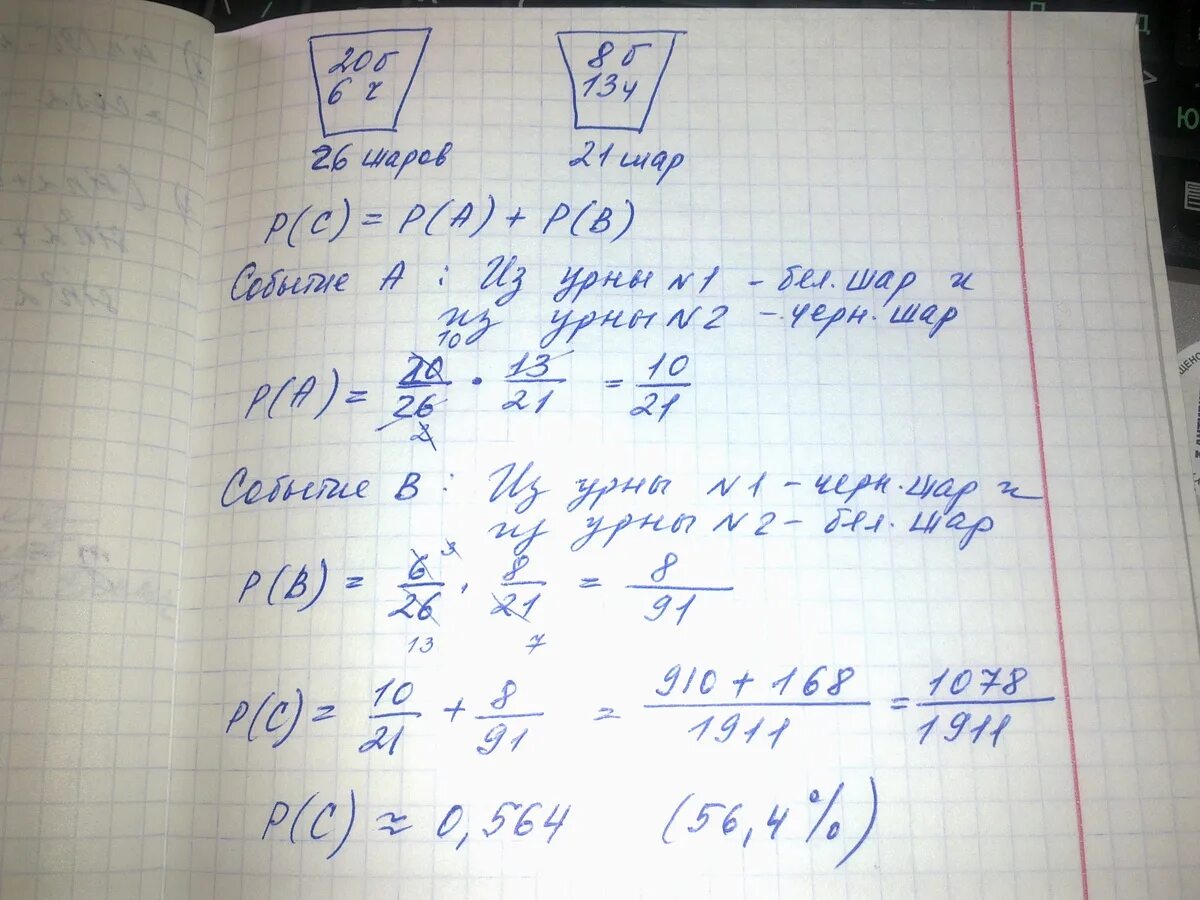 20б
6 ч
8 б
13ч
26 шаров
21 шар
P(C) = P(A) + P(B)
Событие A : Из урны N1 - бел. шар и
из урны N2 - черн. шар
10
P(A) = 20/26 · 13/21 = 10/21
2
Событие B : Из урны N1 - черн. шар и
из урны N2 - бел. шар
P(B) = 6/26 · 8/21 = 8/91
13 7
P(C) = 10/21 + 8/91 = 910 + 168/1911 = 1078/1911
P(C) ≈ 0,564 (56,4%)
Ю